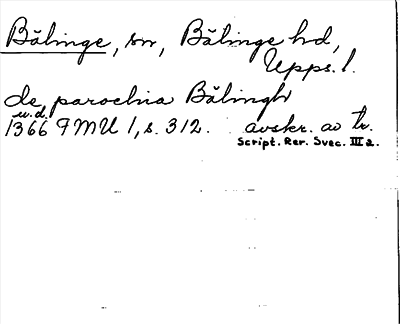 Bälinge, sn, Bälinge hd,
Upps. l.
de parochia Bälingh
u.d.
1366 FMU 1, s. 312. avskr. av tr.
Script. Rer. Svec. III 2.